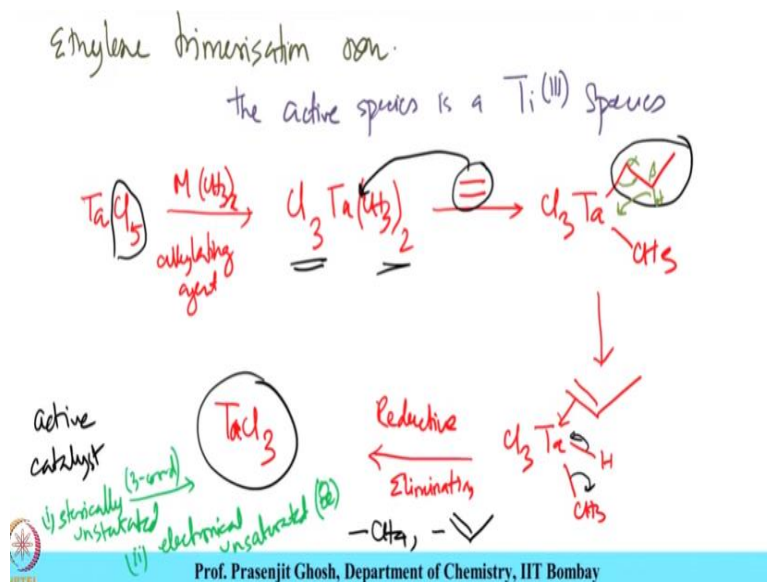 Ethylene trimerisation rxn.
the active species is a Ti(III) Species
TaCl5
M(CH3)2
alkylating
agent
Cl3Ta(CH3)2
=
Cl3Ta
α β
H
CH3
Cl3Ta
H
CH3
Reductive
Elimination
-CH4, -
TaCl3
active
catalyst
(i) sterically (3-cord)
unsaturated
(ii) electronical
unsaturated (8e)
NPTEL
Prof. Prasenjit Ghosh, Department of Chemistry, IIT Bombay